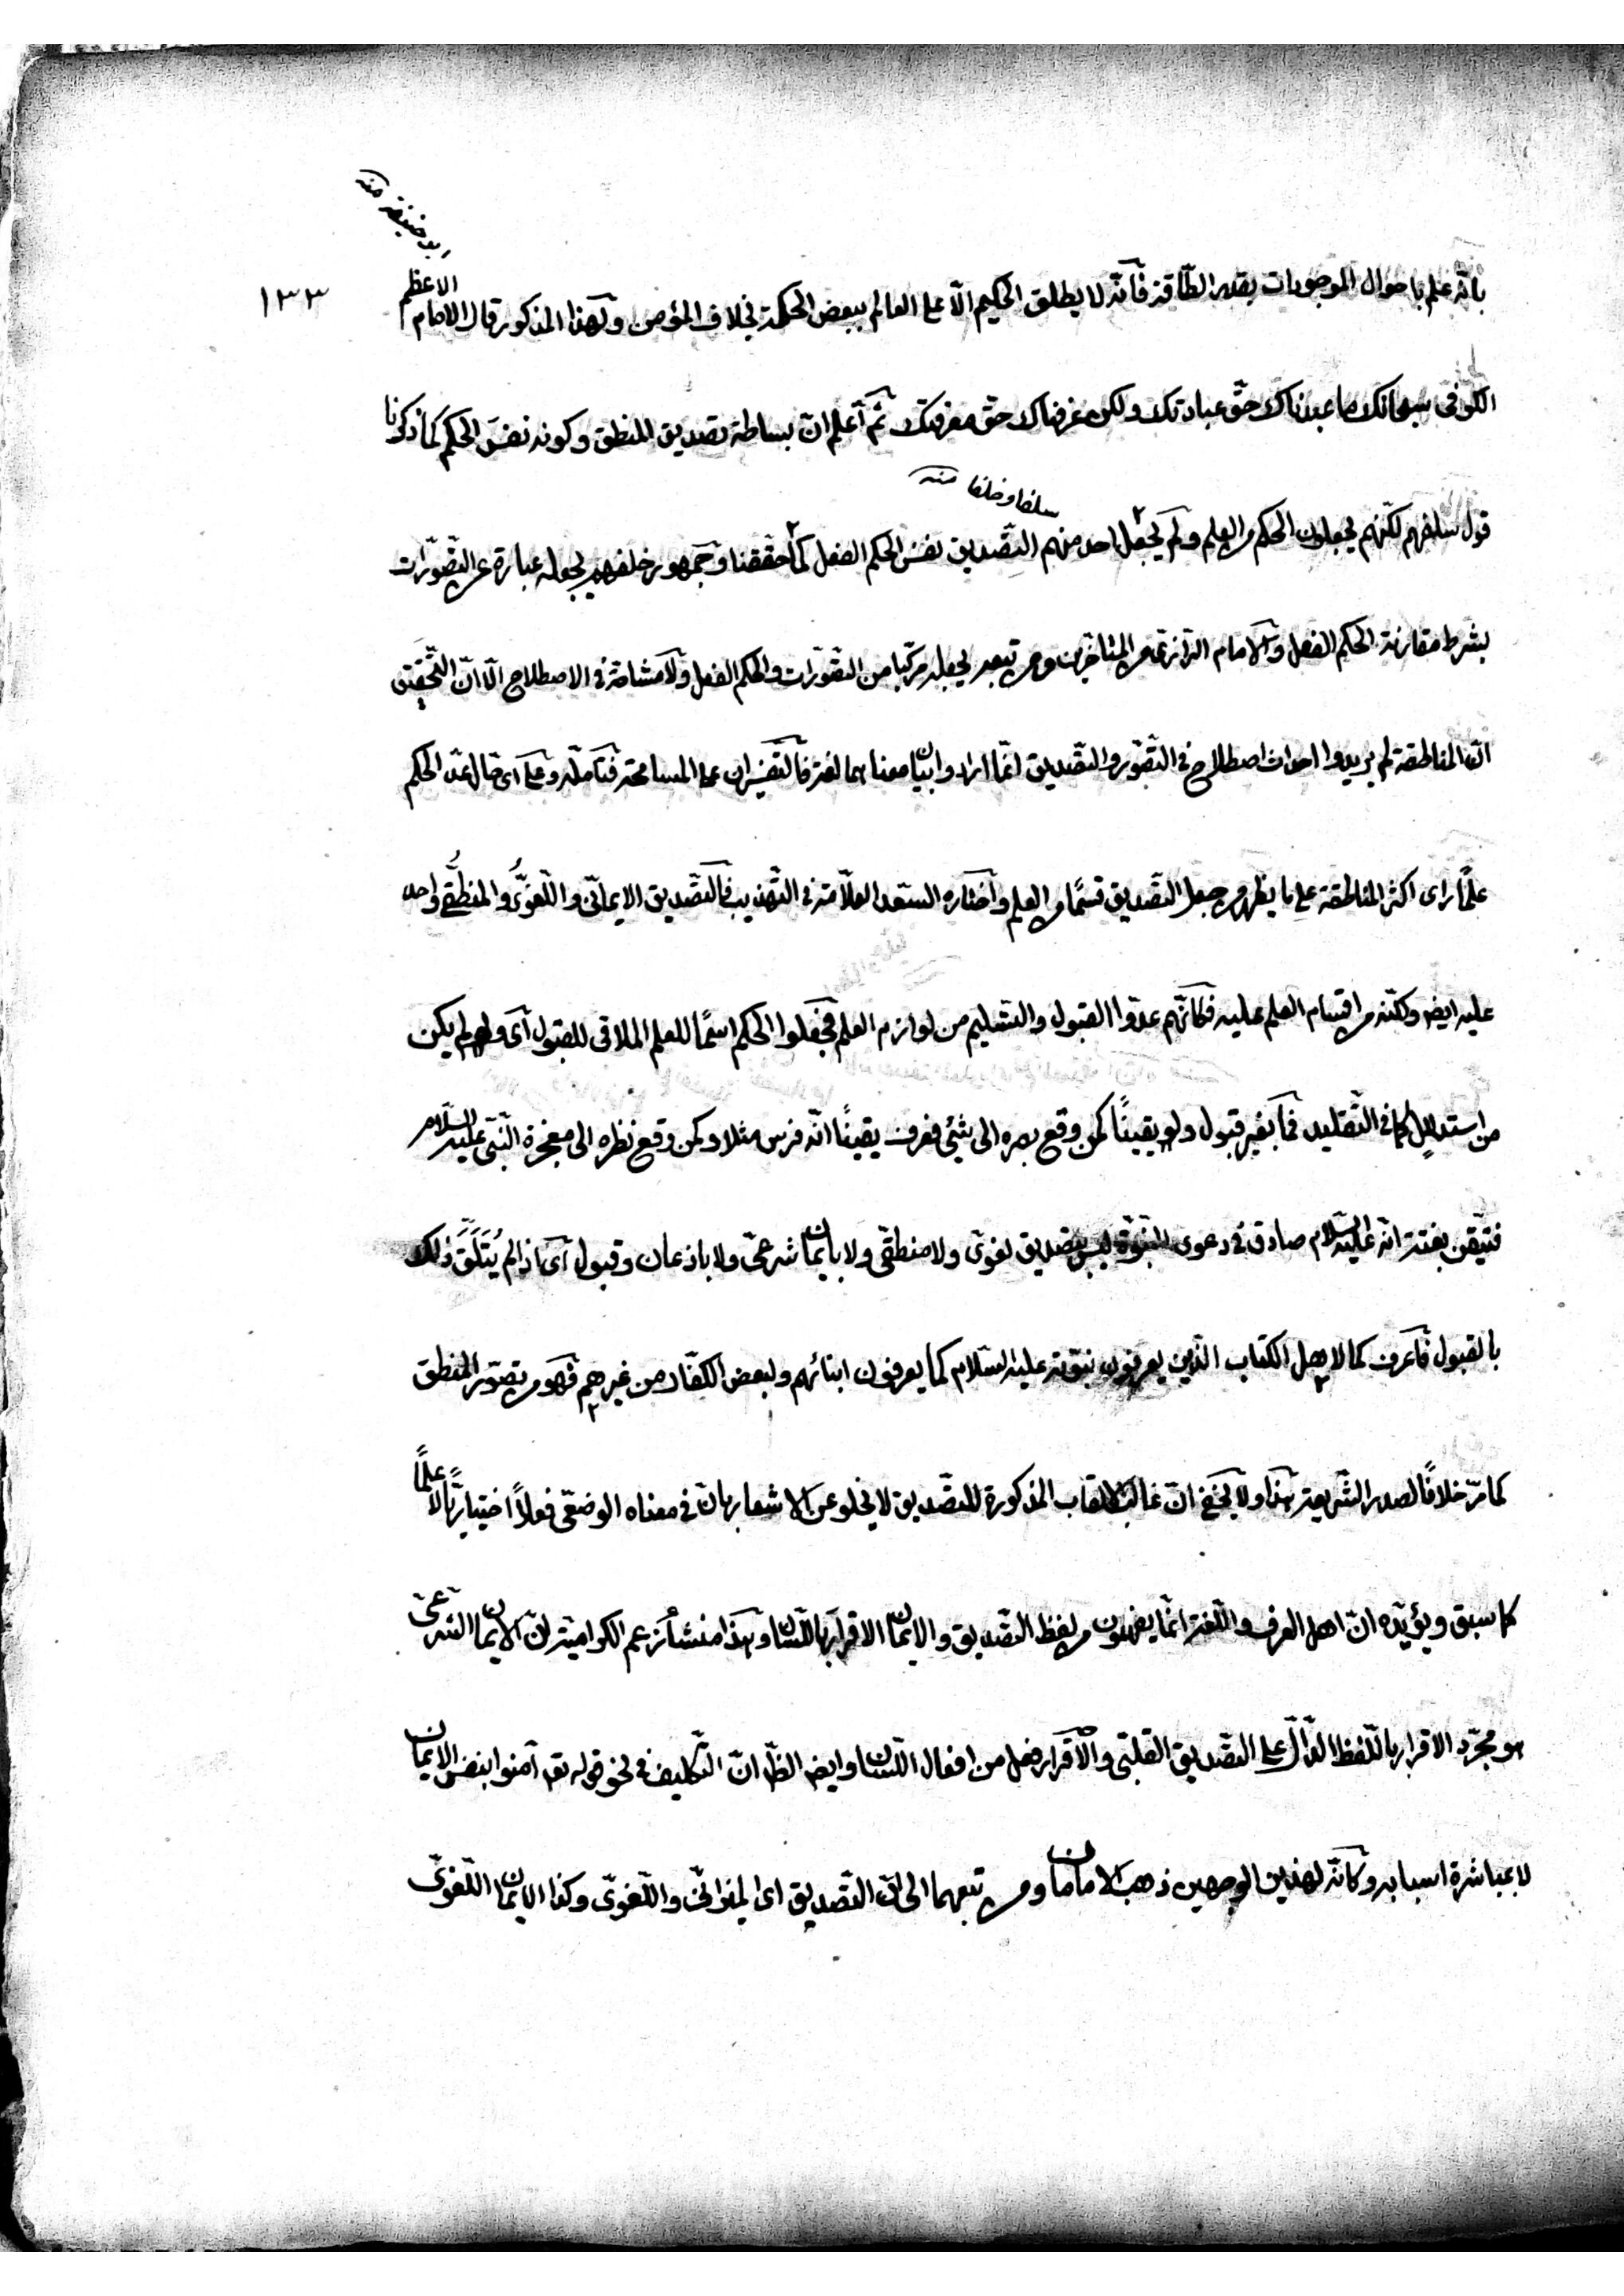 ابو حنيفة منه
١٣٣
بانّه علم باحوال الموجودات بقدر الطّاقة فانّه لا يطلق الحكيم الّا على العالم ببعض الحكمة بخلاف المؤمن ولهذا المذكور قال الامام الاعظم
الكوفى سبحانك ما عبدناك حقّ عبادتك ولكن عرفناك حقّ معرفتك ثمّ اعلم انّ بساطة تصديق المنطق وكونه نفسَ الحكم كما ذكرنا
سلفا وخلفا منه
قول سلفهم لكنّهم يجعلون الحكم من العلم ولم يجعل احد منهم التّصديق نفس الحكم الفعل كما حققنا وجمهور خلفهم يجعله عبارة عن التّصوّرات
بشرط مقارنة الحكم الفعل والامام الرّازىّ من المتاخّرين ومن تبعه يجعله مركّبا من التّصوّرات والحكم الفعل ولا مشاحّة فى الاصطلاح الّا انّ التّحقيق
انّ المناطقة لم يريدوا احداث اصطلاح فى التّصوّر والتّصديق انّما ارادوا بيان معناهما لغة فالتّفسيران على المسامحة فتامّله وعلى اى حال فعدّ الحكم
علمًا راى اكثر المناطقة على ما يظهر من جعل التّصديق قسمًا من العلم واختاره السّعد العلّامة فى التّهذيب فالتّصديق الايمانىّ واللّغوىُّ والمنطقىُّ واحد
عليه ايضا وكلّه من اقسام العلم عليه فكانّهم عدّوا القبول والتسليم من لوازم العلم فجعلوا الحكم اسمًا للعلم الملاقى للقبول اى ولو لم يكن
من استدلالٍ كما فى التّقليد فما بغير قبول ولو يقينًا كمن وقع بصره الى شئ فعرف يقينًا انّه فرس مثلا وكمن وقع نظره الى معجزة النّبىّ عليه السّلام
فتيقّن بغتة انّه عليه السّلام صادق فى دعوى النّبوّة ليس بتصديق لغوىّ ولا منطقىّ ولا بايمان شرعىّ ولا باذعان وقبول اى اذ لم يُتَلَقَّ ذلك
بالقبول فاعرف كما لاهل الكتاب الّذين يعرفون نبوّته عليه السّلام كما يعرفون ابنائهم ولبعض الكفّار من غيرهم فهو من تصوّر المنطق
كما مرّ خلافًا لصدر الشّريعة هذا ولا يخفى انّ غالب الالقاب المذكورة للتصّديق لا يخلو عن الاشعار بانّ فى معناه الوضعىّ فعلاً اختياريًّا لا علمًا
كما سبق ويؤيّده انّ اهل العرف واللّغة انّما يفهمون من لفظ التّصديق والايمان الاقرار باللّسان وهذا منشأ زعم الكراميّة انّ الايمان الشّرعىّ
هو مجرّد الاقرار باللّفظ الدّالّ على التصّديق القلبّى والاقرار فعل من افعال اللّسان وايضا الظّ انّ التّكليف فى نحو قوله تع آمنوا بنفس الايمان
لا بمباشرة اسبابه وكانّه لهذين الوجهين ذهب الامامان ومن تبعهما الى انّ التّصديق اى الميزانىّ واللّغوىّ وكذا الايمان اللّغوىّ